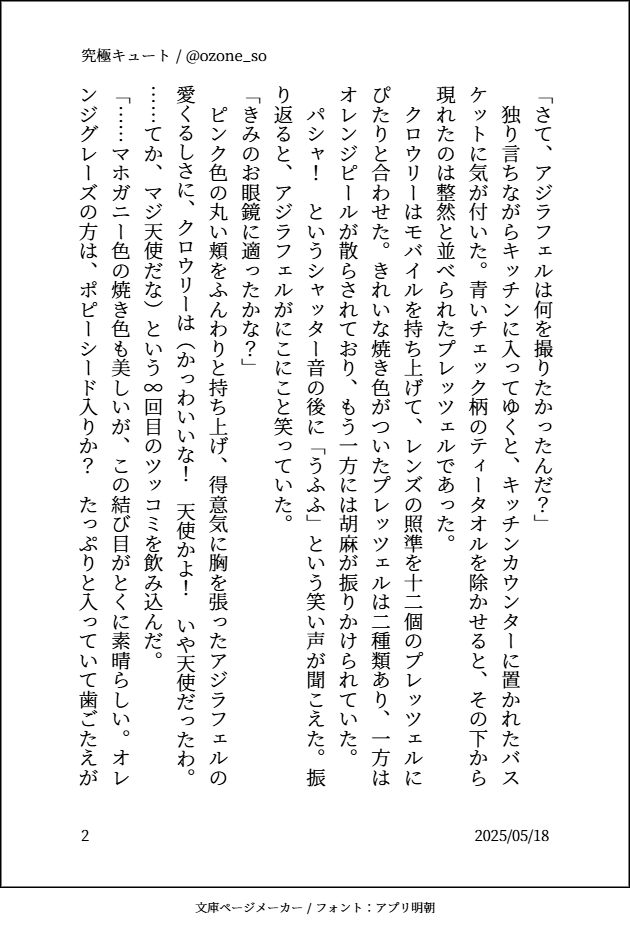 究極キュート / @ozone_so
「さて、アジラフェルは何を撮りたかったんだ？」
　独り言ちながらキッチンに入ってゆくと、キッチンカウンターに置かれたバス
ケットに気が付いた。青いチェック柄のティータオルを除かせると、その下から
現れたのは整然と並べられたプレッツェルであった。
　クロウリーはモバイルを持ち上げて、レンズの照準を十二個のプレッツェルに
ぴたりと合わせた。きれいな焼き色がついたプレッツェルは二種類あり、一方は
オレンジピールが散らされており、もう一方には胡麻が振りかけられていた。
　パシャ！　というシャッター音の後に「うふふ」という笑い声が聞こえた。振
り返ると、アジラフェルがにこにこと笑っていた。
「きみのお眼鏡に適ったかな？」
　ピンク色の丸い頬をふんわりと持ち上げ、得意気に胸を張ったアジラフェルの
愛くるしさに、クロウリーは（かっわいいな！　天使かよ！　いや天使だったわ。
……てか、マジ天使だな）という∞回目のツッコミを飲み込んだ。
「……マホガニー色の焼き色も美しいが、この結び目がとくに素晴らしい。オレ
ンジグレーズの方は、ポピーシード入りか？　たっぷりと入っていて歯ごたえが
2
2025/05/18
文庫ページメーカー / フォント：アプリ明朝